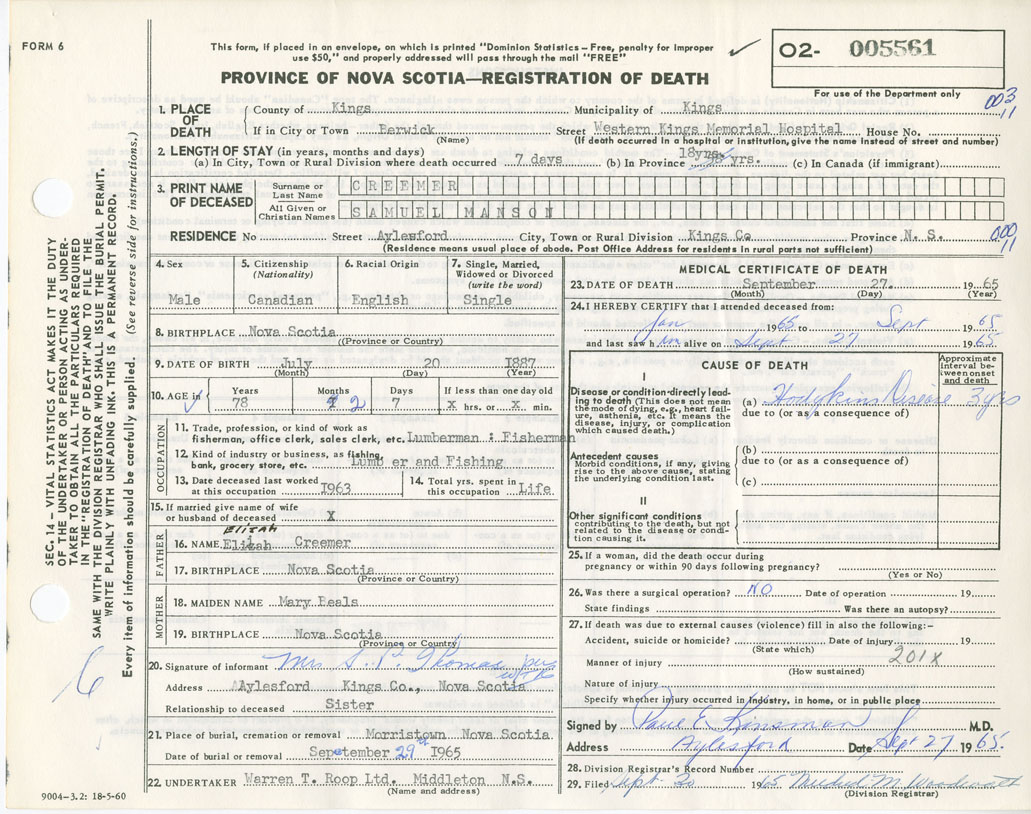 FORM 6
This form, if placed in an envelope, on which is printed "Dominion Statistics – Free, penalty for improper
use $50," and properly addressed will pass through the mail "FREE"
PROVINCE OF NOVA SCOTIA—REGISTRATION OF DEATH
O2- 005561
For use of the Department only
003
11
1. PLACE OF DEATH
County of Kings Municipality of Kings
If in City or Town Berwick Street Western Kings Memorial Hospital House No.
(Name) (If death occurred in a hospital or institution, give the name instead of street and number)
2. LENGTH OF STAY (in years, months and days) 18yrs.
(a) In City, Town or Rural Division where death occurred 7 days (b) In Province yrs. (c) In Canada (if immigrant)
3. PRINT NAME OF DECEASED
Surname or Last Name CREEMER
All Given or Christian Names SAMUEL MANSON
RESIDENCE No Street Aylesford City, Town or Rural Division Kings Co Province N. S.
(Residence means usual place of abode. Post Office Address for residents in rural parts not sufficient)
000
11
SEC. 14 – VITAL STATISTICS ACT MAKES IT THE DUTY
OF THE UNDERTAKER OR PERSON ACTING AS UNDER-
TAKER TO OBTAIN ALL THE PARTICULARS REQUIRED
IN THE "REGISTRATION OF DEATH" AND TO FILE THE
SAME WITH THE DIVISION REGISTRAR WHO SHALL ISSUE THE BURIAL PERMIT.
WRITE PLAINLY WITH UNFADING INK. THIS IS A PERMANENT RECORD.
Every item of information should be carefully supplied. (See reverse side for instructions.)
6
4. Sex
Male
5. Citizenship
(Nationality)
Canadian
6. Racial Origin
English
7. Single, Married, Widowed or Divorced
(write the word)
Single
8. BIRTHPLACE Nova Scotia
(Province or Country)
9. DATE OF BIRTH July 20 1887
(Month) (Day) (Year)
10. AGE in Years Months Days If less than one day old
78 2 7 X hrs. or X min.
OCCUPATION
11. Trade, profession, or kind of work as
fisherman, office clerk, sales clerk, etc. Lumberman : Fisherman
12. Kind of industry or business, as fishing,
bank, grocery store, etc. Lumb er and Fishing
13. Date deceased last worked
at this occupation I963
14. Total yrs. spent in
this occupation Life
15. If married give name of wife
or husband of deceased X
FATHER
ELIJAH
16. NAME Elizah Creemer
17. BIRTHPLACE Nova Scotia
(Province or Country)
MOTHER
18. MAIDEN NAME Mary Beals
19. BIRTHPLACE Nova Scotia
(Province or Country)
20. Signature of informant Mrs S. P. Thomas per WTR
Address Aylesford Kings Co., Nova Scotia
Relationship to deceased Sister
21. Place of burial, cremation or removal Morristown Nova Scotia
Date of burial or removal September 29 I965
22. UNDERTAKER Warren T. Roop Ltd. Middleton N.S.
(Name and address)
9004–3.2: 18-5-60
MEDICAL CERTIFICATE OF DEATH
23. DATE OF DEATH September 27. 19 65
(Month) (Day) (Year)
24. I HEREBY CERTIFY that I attended deceased from:
Jan 1965 to Sept 1965
and last saw him alive on Sept 27 1965
CAUSE OF DEATH
Approximate interval between onset and death
I
Disease or condition directly lead-
ing to death (This does not mean
the mode of dying, e.g., heart fail-
ure, asthenia, etc. It means the
disease, injury, or complication
which caused death.)
(a) Hodgkins Disease 3 yrs
due to (or as a consequence of)
Antecedent causes
Morbid conditions, if any, giving
rise to the above cause, stating
the underlying condition last.
(b)
due to (or as a consequence of)
(c)
II
Other significant conditions
contributing to the death, but not
related to the disease or condi-
tion causing it.
25. If a woman, did the death occur during
pregnancy or within 90 days following pregnancy?
(Yes or No)
26. Was there a surgical operation? NO Date of operation 19
State findings Was there an autopsy?
27. If death was due to external causes (violence) fill in also the following:-
Accident, suicide or homicide? Date of injury 19
(State which)
201X
Manner of injury
(How sustained)
Nature of injury
Specify whether injury occurred in industry, in home, or in public place
Signed by Paul E Kinsman M.D.
Address Aylesford Date Sept 27 1965.
28. Division Registrar's Record Number
29. Filed Sept 30 1965 M.
(Division Registrar)